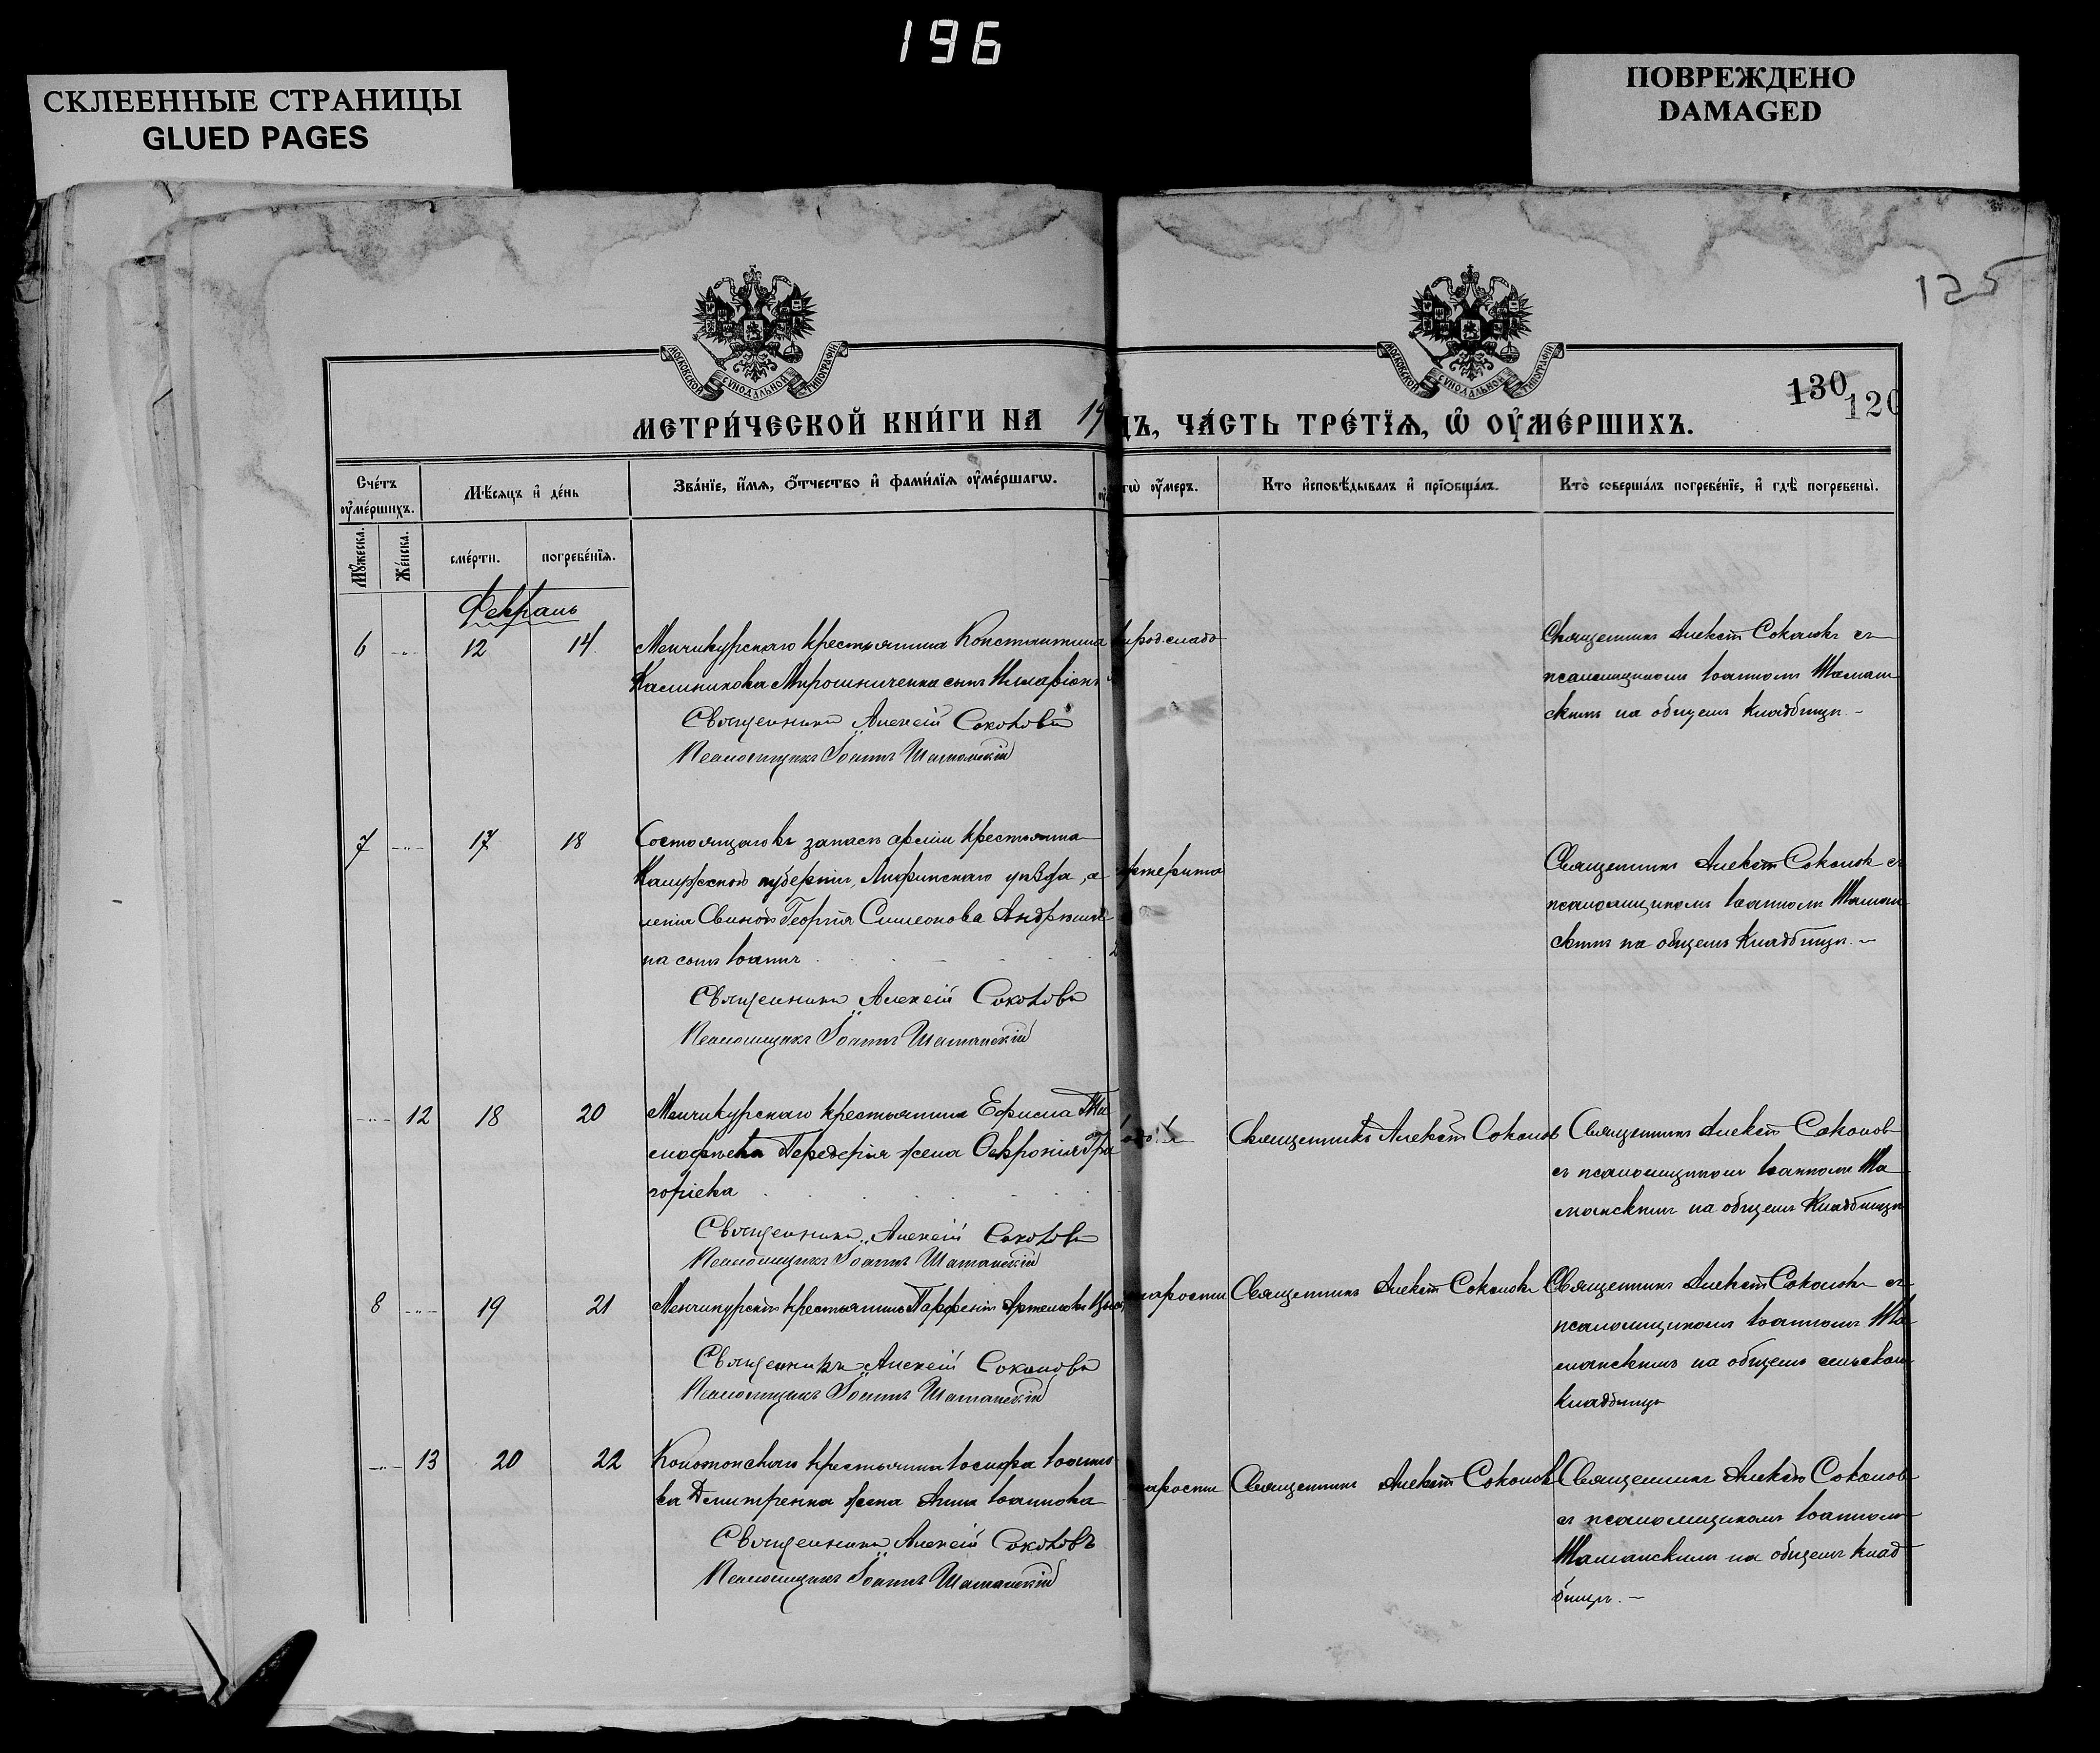 196
СКЛЕЕННЫЕ СТРАНИЦЫ
GLUED PAGES
ПОВРЕЖДЕНО
DAMAGED
125
МОСКОВСКОЙ СѴНОДАЛЬНОЙ ТИПОГРАФІИ
МОСКОВСКОЙ СѴНОДАЛЬНОЙ ТИПОГРАФІИ
130
120
МЕТРИ́ЧЕСКОЙ КНИ́ГИ НА 19
ДЪ, ЧА́СТЬ ТРЕ́ТЇѦ, Ѿ ОУ҆МЕ́РШИХЪ.
Сче́тъ оу҆ме́ршихъ.
Мѣ́сѧцъ и҆ де́нь
Зва́нїе, и҆́мѧ, ѻ҆́тчество и҆ фами́лїѧ оу҆ме́ршагѡ.
гѡ̀ оу҆́меръ.
Кто̀ и҆сповѣ́дывалъ и҆ прїѻбща́лъ.
Кто̀ соверша́лъ погребе́нїе, и҆ гдѣ̀ погребены̀.
Мꙋ́жеска.
Же́нска.
сме́рти.
погребе́нїѧ.
Февраль
6 -"- 12 14 Менчикурскаго крестьянина Константина
Калиникова Мирошниченка сынъ Илларіонъ
Священникъ Алексій Соколовъ
Псаломщикъ Іоаннъ Шаманскій
Священникъ Алексій Соколовъ съ
псаломщикомъ Іоанномъ Шаман
скимъ на общемъ кладбищѣ. –
7 -"- 17 18 Состоящаго въ запасѣ арміи крестьянина
Калужской губерніи, уѣзда, се
ленія Георгія Симеонова
на сынъ Іоаннъ
Священникъ Алексій Соколовъ
Псаломщикъ Іоаннъ Шаманскій
Священникъ Алексій Соколовъ съ
псаломщикомъ Іоанномъ Шаман
скимъ на общемъ кладбищѣ. –
-"- 12 18 20 Менчикурскаго крестьянина Ефима Ти
мофѣева Передерія жена Февронія Гри
горіева
Священникъ Алексій Соколовъ
Псаломщикъ Іоаннъ Шаманскій
Священникъ Алексій Соколовъ
Священникъ Алексій Соколовъ
съ псаломщикомъ Іоанномъ Ша
манскимъ на общемъ кладбищѣ
8 -"- 19 21 Менчикурскій крестьянинъ Парфеній
старости
Священникъ Алексій Соколовъ
Священникъ Алексій Соколовъ Соколовъ
Псаломщикъ Іоаннъ Шаманскій
Священникъ Алексій Соколовъ съ
псаломщикомъ Іоанномъ Ша
манскимъ на общемъ сельскомъ
кладбищѣ
-"- 13 20 22 крестьянина Іосифа Іоанно
ва Дмитренка жена Анна Іоаннова
Священникъ Алексій Соколовъ
Псаломщикъ Іоаннъ Шаманскій
старости
Священникъ Алексій Соколовъ
Священникъ Алексій Соколовъ
съ псаломщикомъ Іоанномъ
Шаманскимъ на общемъ клад
бищѣ. –